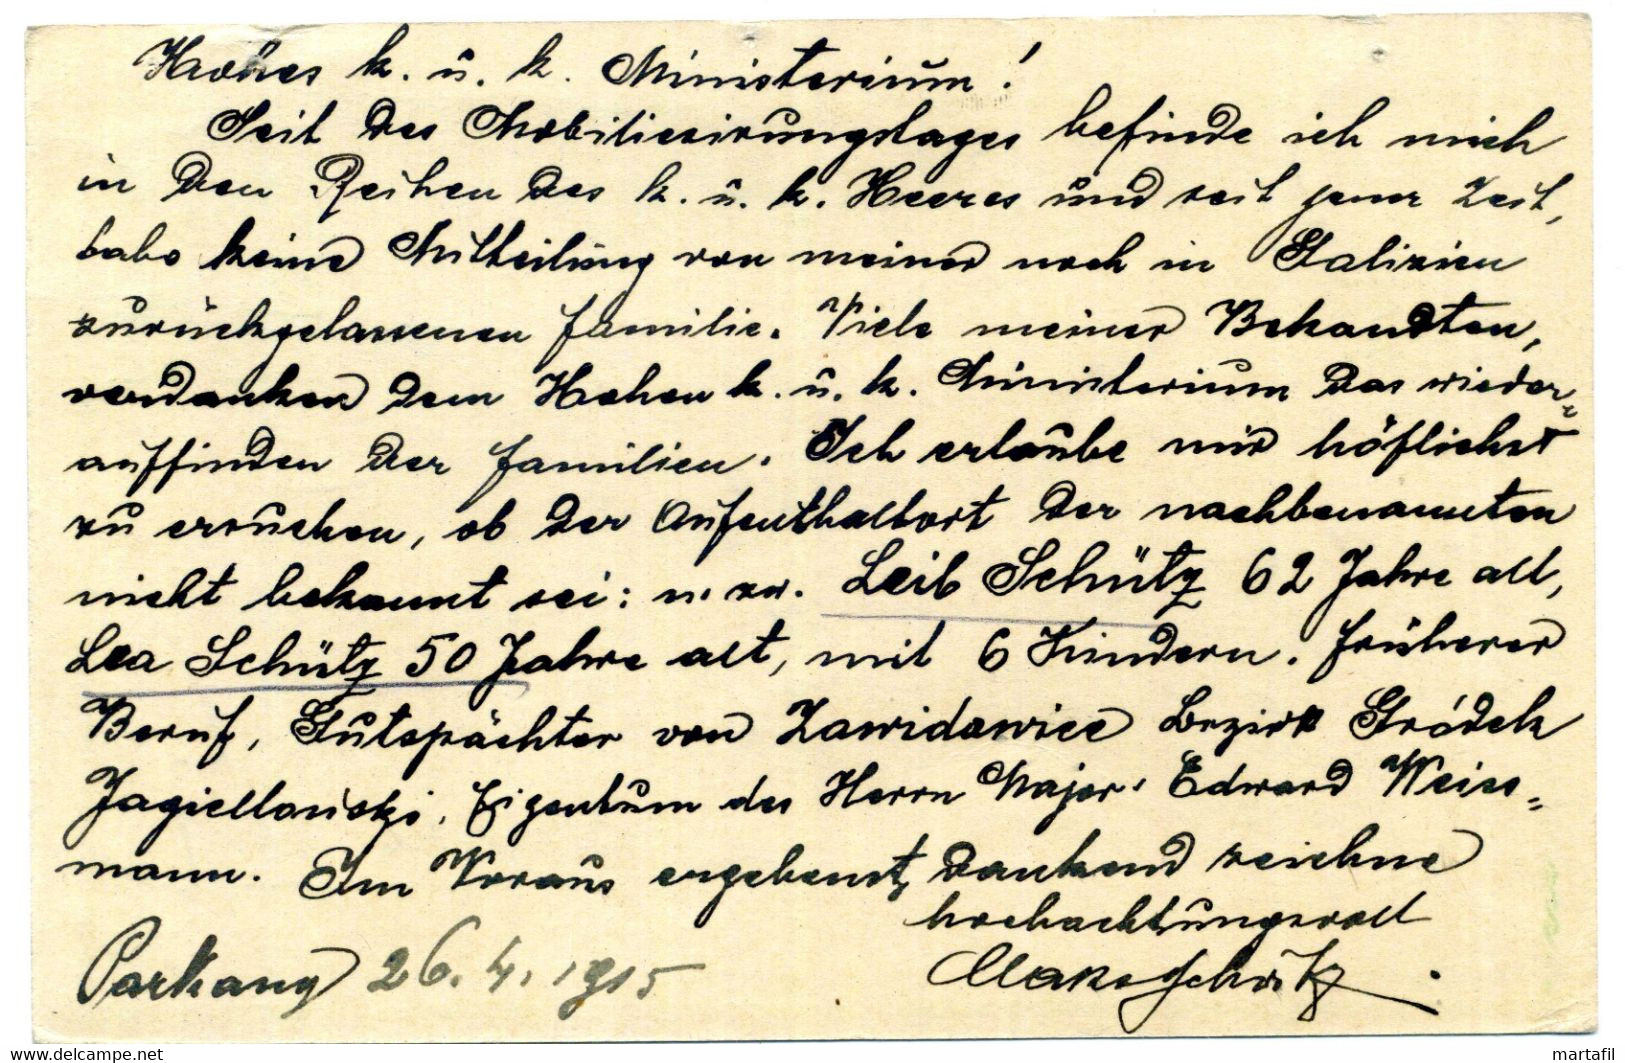 Hohes k. u. k. Ministerium!
Seit des Mobilisirungstages befinde ich mich
in den Reihen des k. u. k. Heeres und seit jener Zeit,
habe keine Mittheilung von meiner noch in Galizien
zurückgelassenen Familie. Viele meiner Bekandten,
verdanken dem Hohen k. u. k. Ministerium das wieder=
auffinden der Familien. Ich erlaube mir höflichst
zu ersuchen, ob der Aufenthaltort der nachbenannten
nicht bekannt sei: u. zw. Leib Schütz 62 Jahre alt,
Lea Schütz 50 Jahre alt, mit 6 Kindern. Früherer
Beruf, Gutspächter von Zawidowice Bezirk Gródek
Jagielloński, Eigentum des Herrn Major Edward Weiss=
mann. Im Voraus ergebenst, dankend zeichne
hochachtungsvoll
Parkany 26.4.1915 Schütz
martafil